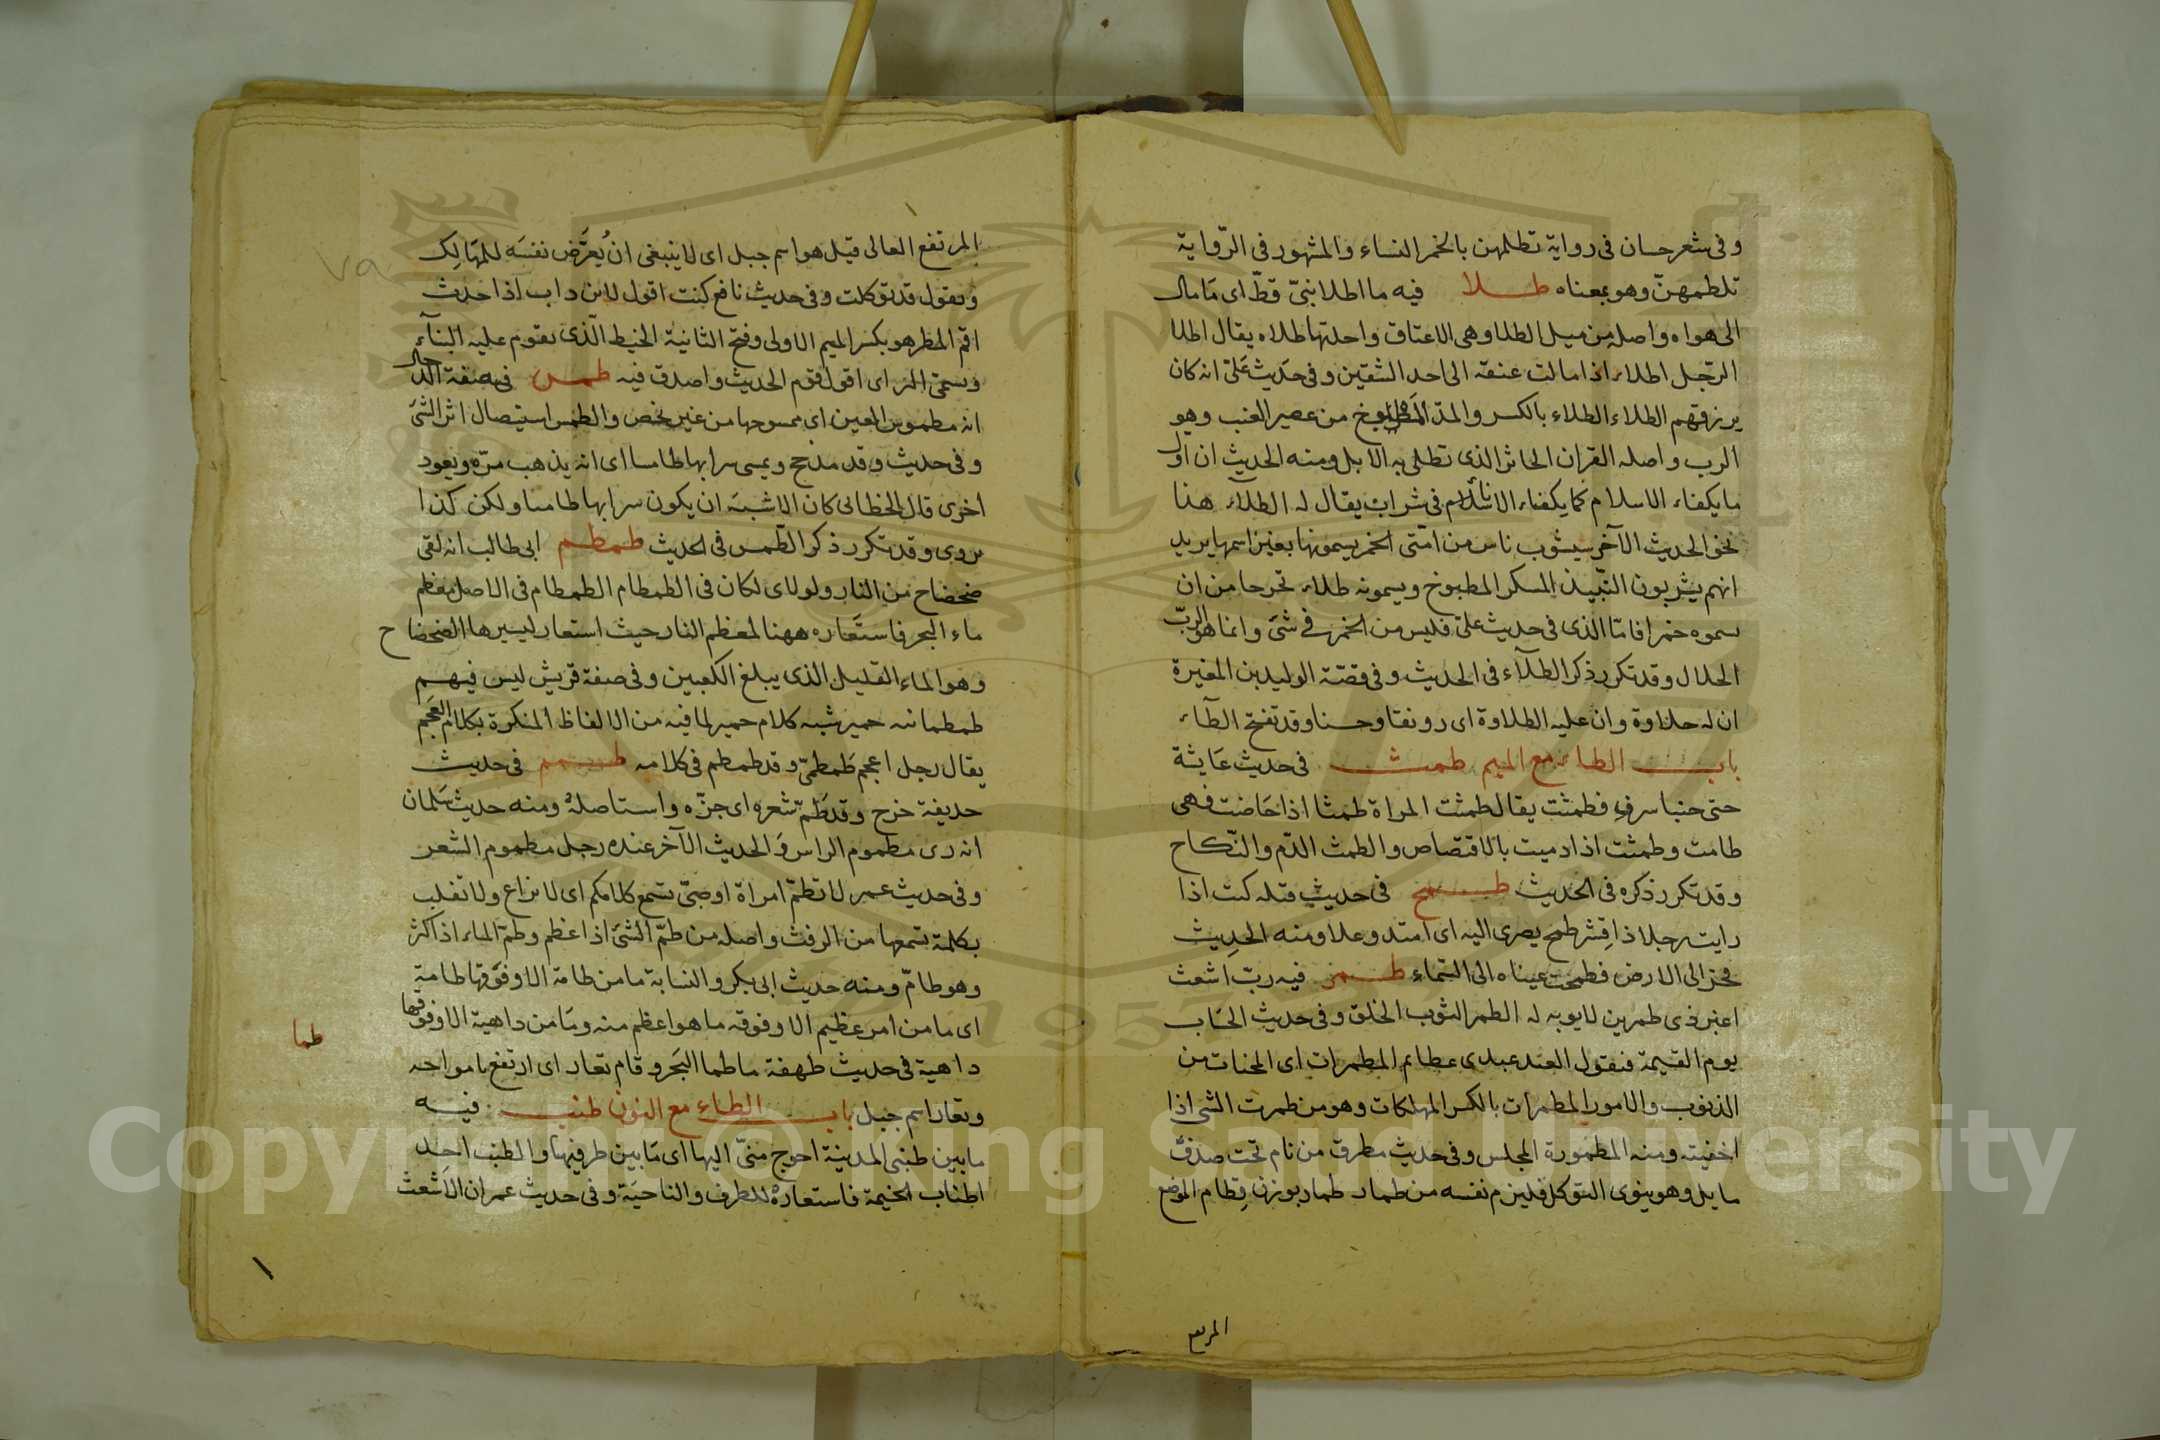 وفى شعر حسان فى رواية تطلمهن بالخمر النساء والمشهور فى الرّواية
تلطمهنّ وهو بمعناه طلا فيه ما اطلا نبىّ قطّ اى مَا مال
الى هواه واصله من ميل الطلا وهى الاعناق واحدتها طلاه يقال اطلا
الرّجل اطلاء اذا مالت عنقه الى احد الشقين وفى حَديث عَلىّ انه كان
يرزقهم الطلاء الطلاء بالكسر والمدّ المَطبوخ من عصير العنب وهو
الرب واصله القران الخاثر الذى تطلى به الابل ومنه الحديث ان اول
ما يكفاء الاسلام كما يكفاء الاناء فى شراب يقال له الطلآء هذا
نحو الحديث الآخر سيشوب ناس من امّتى الخمر يسمونها بغير اسمها يريد
انهم يشربون النّبيذ المسكر المطبوخ ويسمونه طلاء تحرجا من ان
يسموه خمرا فامّا الذى فى حديث علىّ فليس من الخمر فى شىَ وانما هو الربّ
الحلال وقد تكرر ذكر الطلآء فى الحديث وفى قصّة الوليد بن المغيرة
ان له حلاوة وان عليه الطلاوة اى رونقا وحسنا وقد تفتح الطآء
باب الطاء مع الميم طمث فى حديث عَايشة
حتى جئنا سرف فطمثت يقال طمثت المراة طمثا اذا حَاضت فهى
طامث وطمثت اذا دميت بالاقتصاص والطمث الدّم والنّكاح
وقد تكرر ذكره فى الحديث طمح فى حديث قيله كنت اذا
رايت رجلا ذا قِشر طمح بصرى اليه اى امتد وعلا ومنه الحدِيث
فخر الى الارض فطمحت عيناه الى السّماء طمر فيه ربّ اشعث
اغبر ذى طمرين لا يوبه له الطمر الثوب الخلق وفى حديث الحسَاب
يوم القيمة فيقول العبد عبدى عظائم المطمرات اى المخبات من
الذنوب والامور المطمرات بالكسر المهلكات وهو من طمرت الشى اذا
اخفيته ومنه المطمورة المجلس وفى حديث مطرف من نام تحت صدف
مايل وهو ينوى التوكل فليرم نفسه من طمار طمار بوزن قِطام الموضع
المرتفع
المرتفع العالى قيل هو اسم جبل اى لا ينبغى ان يُعرَّض نفسَه للمهَالِك
ويقول قد توكلت وفى حديث نافع كنت اقول لابن داب اذا حدث
اقم المطمر هو بكسر الميم الاولى وفتح الثانية الخيط الّذى يقوم عليه البنآء
ويسمى التر اى اقول قوّم الحديث واصدق فيه طمس فى صفة الدّجال
انه مطموس العين اى ممسوحها من غير بخص والطمس استيصال اثر الشىَ
وفى حديث وفد مذحج ويمسى سرابها طامسا اى انه يذهب مرّه ويعود
اخرى قال الخطابى كان الاشبه ان يكون سرابها طامسا ولكن كذا
يروى وقد تكرر ذكر الطّمس فى الحديث طمطم ابى طالب انه لفى
ضحضاح من النار ولولاى لكان فى الطمطام الطمطام فى الاصل معظم
ماء البحر فاستعَاره ههنا لمعظم النار حيث استعار ليسيرها الضحضاح
وهو الماء القليل الذى يبلغ الكعبين وفى صفة قريش ليس فيهم
طمطمانيه حمير شبه كلام حمير لما فيه من الالفاظ المنكرة بكلام العَجم
يقال رجل اعجم طمطمىّ وقد طمطم فى كلامه طمم فى حديث
حذيفة خرج وقد طَمّ شعره اى جزّه واستاصلهُ ومنه حديث سَلمان
انه رى مطموم الراس وَالحديث الآخر عنده رجل مطموم الشعر
وفى حديث عمر لا تطمّ امراة او صبىّ تسمع كلامكم اى لا يراع ولا تغلب
بكلمة تسمعها من الرفث واصله من طمّ الشىَ اذا عظم وطمّ الماء اذا كثر
وهو طامّ ومنه حديث ابى بكر والنسابة ما من طامة الا وفوقها طامة
اى ما من امر عظيم الا وفوقه ما هو اعظم منه ومَا من داهية الا وفوقها
داهية فى حديث طهفة ما طما البَحر وقام تعار اى ارتفع بامواجه
طما
وتعار اسم جبل باب الطاء مع النون طنب فيه
ما بين طنبى المدينة احوج منىّ اليها اى مَا بين طرفيها والطنب احد
اطناب الخيمة فاستعارهُ للطرف والناحيَة وفى حديث عمر ان الاَشعث
Copyright © King Saud University
1957